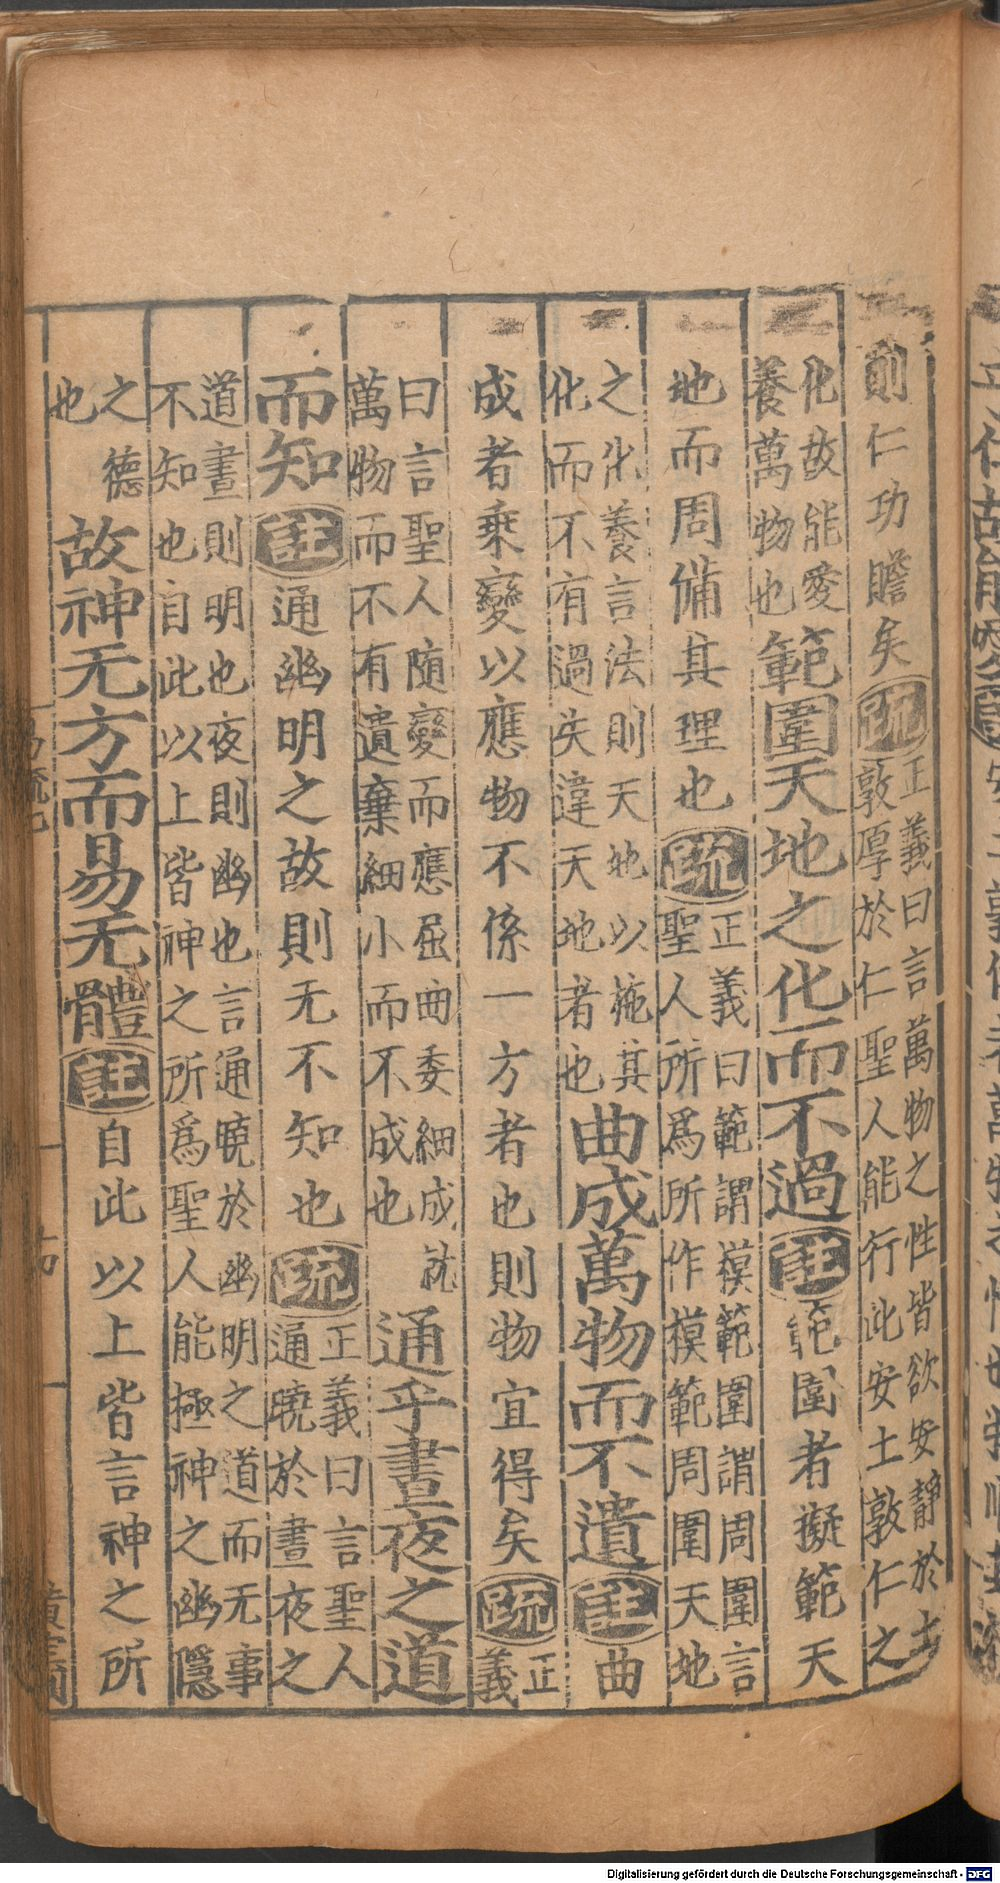 則仁功贍矣疏正義曰言萬物之性皆欲安靜於土
敦厚於仁聖人能行此安土敦仁之
化故能愛
養萬物也範圍天地之化而不過註範圍者擬範天
地而周備其理也疏正義曰範謂模範圍謂周圍言
聖人所爲所作模範周圍天地
之化養言法則天地以施其
化而不有過失違天地者也曲成萬物而不遺註曲
成者乘變以應物不係一方者也則物宜得矣疏正
義
曰言聖人隨變而應屈曲委細成就
萬物而不有遺棄細小而不成也通乎晝夜之道
而知註通幽明之故則无不知也疏正義曰言聖人
通曉於晝夜之
道晝則明也夜則幽也言通曉於幽明之道而无事
不知也自此以上皆神之所爲聖人能極神之幽隱
之德
也故神无方而易无體註自此以上皆言神之所
Digitalisierung gefördert durch die Deutsche Forschungsgemeinschaft - DFG